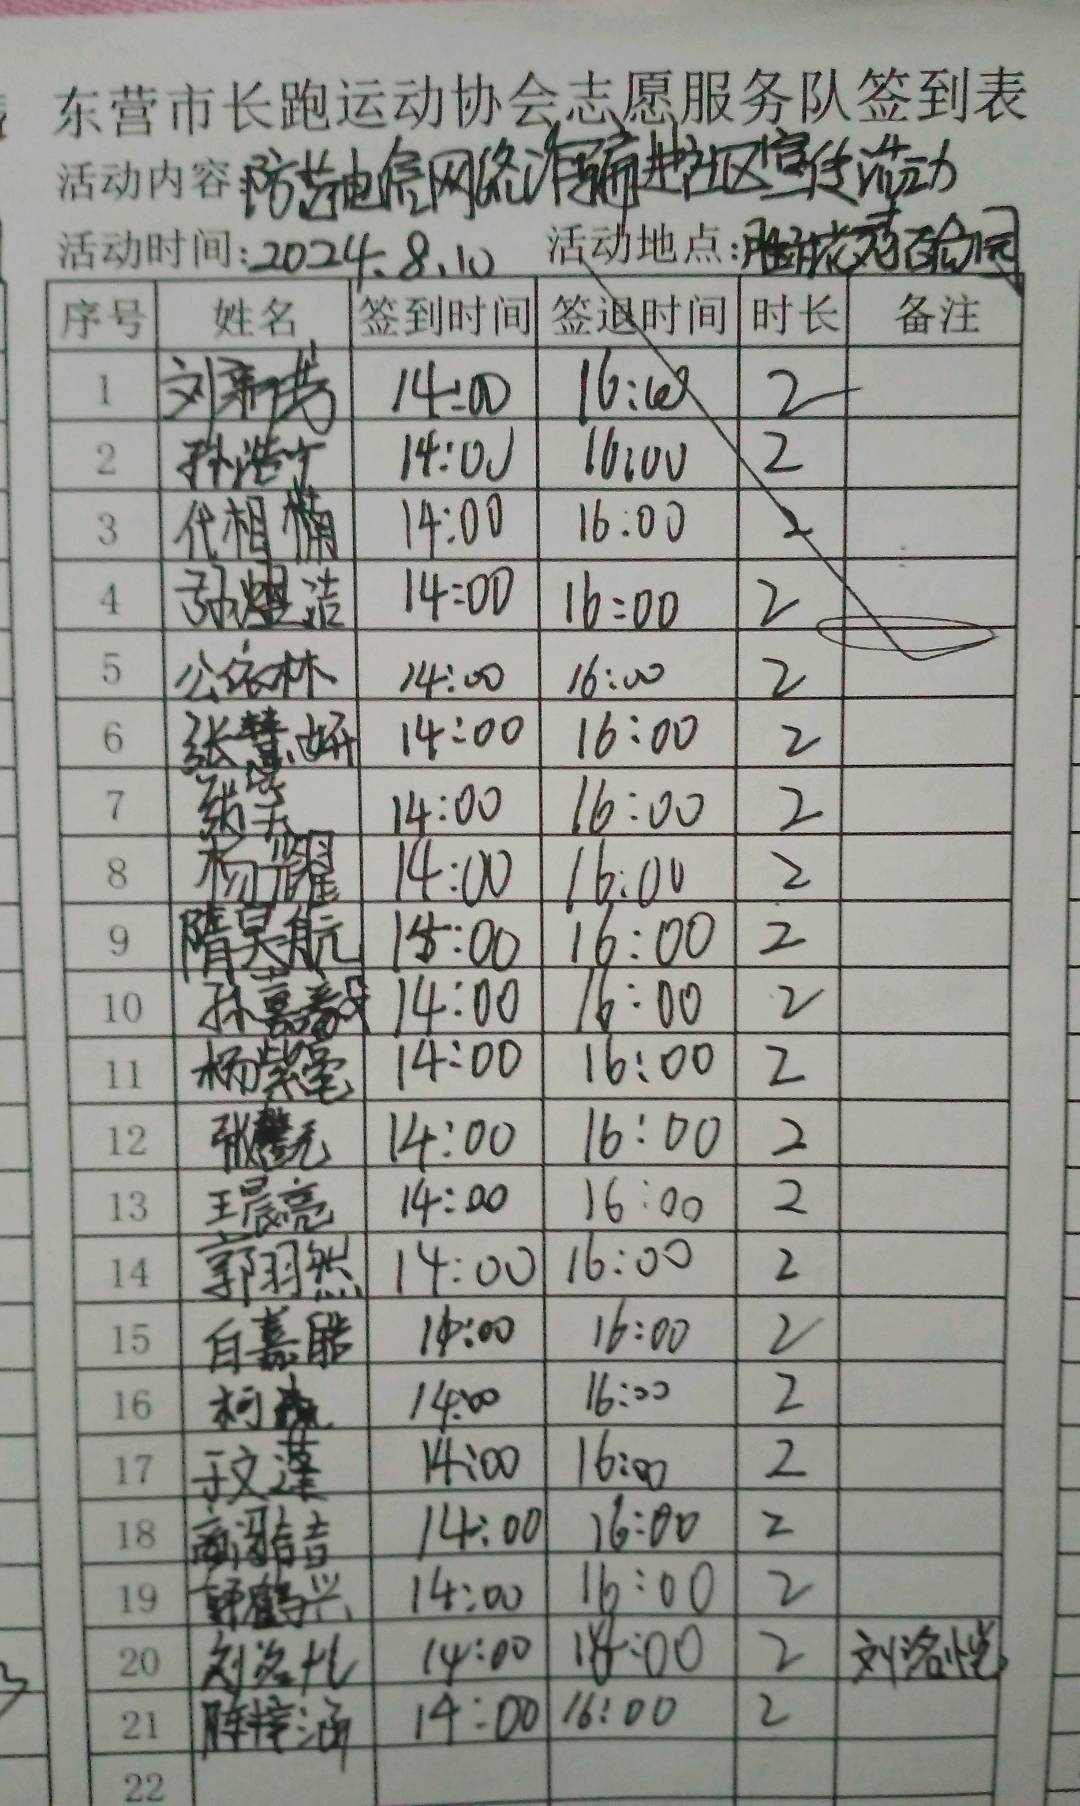 东营市长跑运动协会志愿服务队签到表
活动内容:防范电信网络诈骗进社区宣传活动
活动时间:2024.8.10 活动地点:胜利花苑百合园
序号 姓名 签到时间 签退时间 时长 备注
1 刘 14:00 16:00 2
2 孙浩宁 14:00 16:00 2
3 代相楠 14:00 16:00 2
4 洁 14:00 16:00 2
5 公依林 14:00 16:00 2
6 张慧妍 14:00 16:00 2
7 14:00 16:00 2
8 杨耀 14:00 16:00 2
9 隋昊航 14:00 16:00 2
10 孙嘉毅 14:00 16:00 2
11 杨紫毫 14:00 16:00 2
12 张 元 14:00 16:00 2
13 王晨亮 14:00 16:00 2
14 郭羽然 14:00 16:00 2
15 白嘉 14:00 16:00 2
16 柯 14:00 16:00 2
17 于文蓬 14:00 16:00 2
18 14:00 16:00 2
19 韩鹤兴 14:00 16:00 2
20 刘洛 14:00 16:00 2 刘洛恺
21 陈梓涵 14:00 16:00 2
22